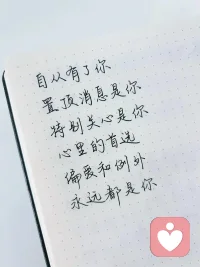 自从有了你
置顶消息是你
特别关心是你
心里的首选
偏爱和例外
永远都是你